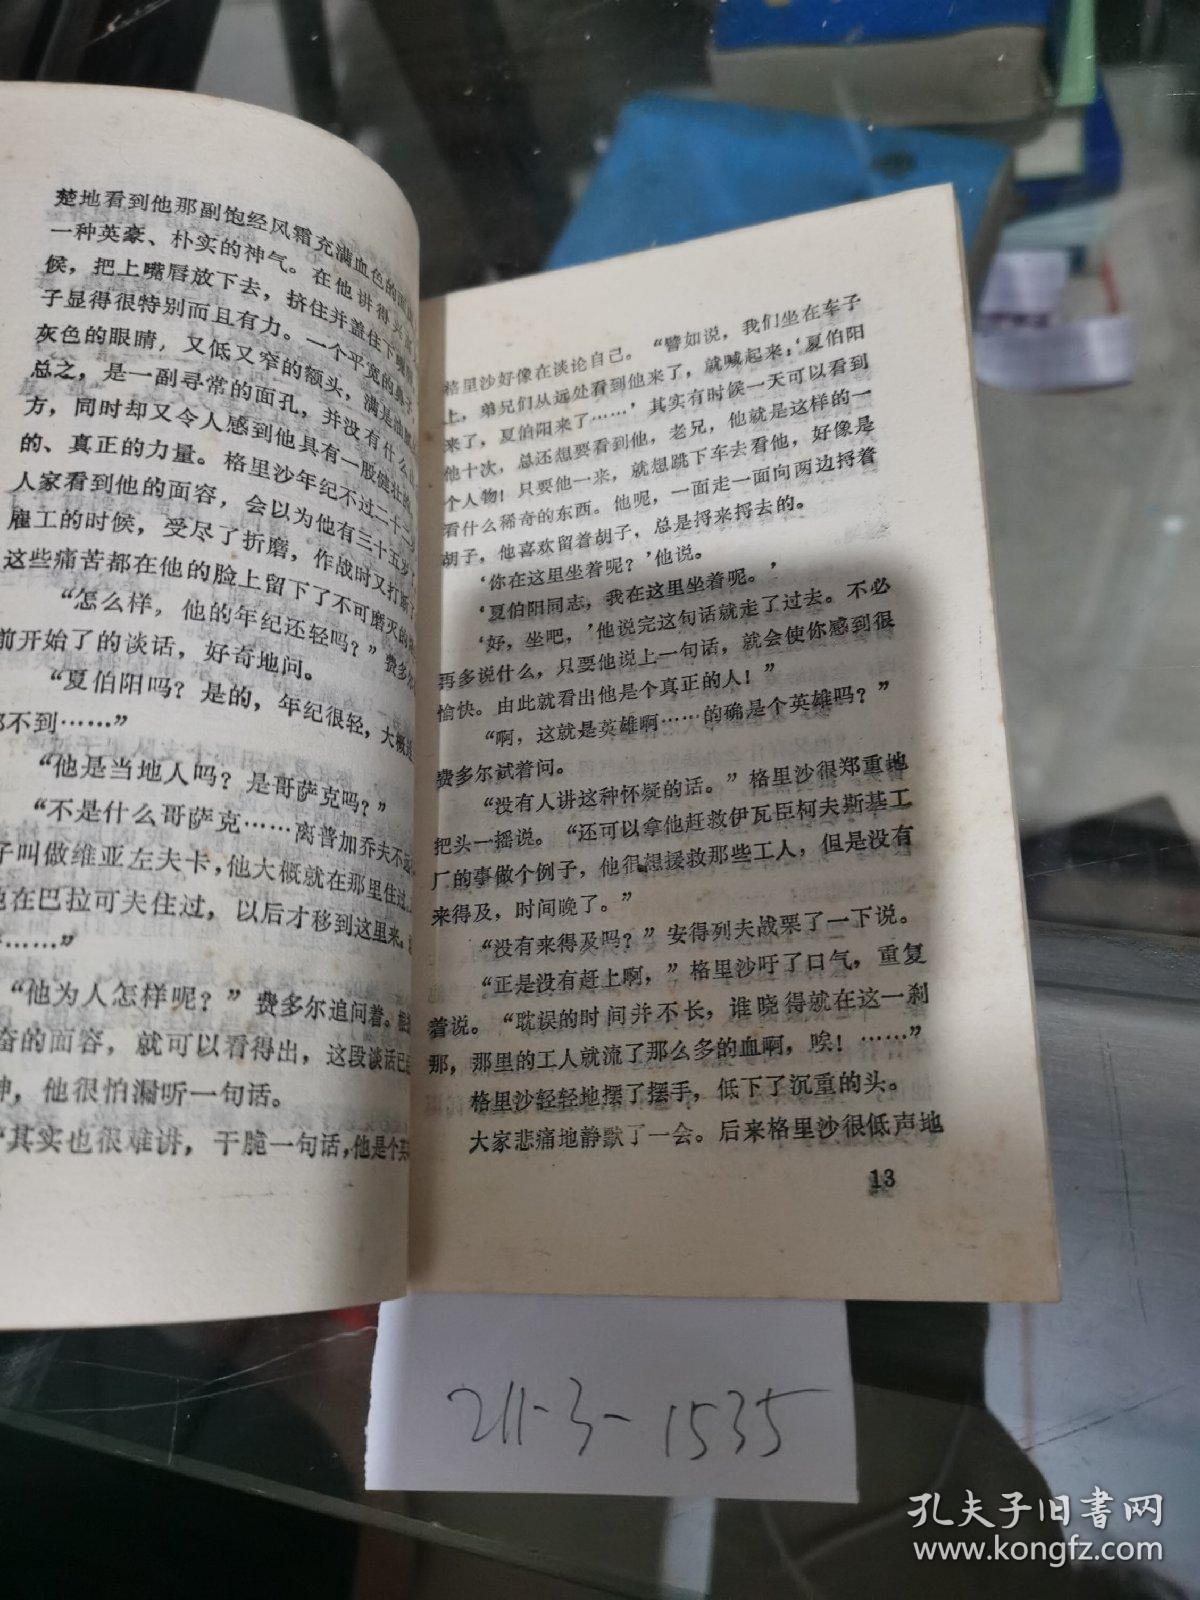 楚地看到他那副饱经风霜充满血色的面
一种英豪、朴实的神气。在他讲得兴
候，把上嘴唇放下去，挤住并盖住下嘴唇
子显得很特别而且有力。一个平宽的鼻子
灰色的眼睛，又低又窄的额头，满是油腻
总之，是一副寻常的面孔，并没有什么
方，同时却又令人感到他具有一股健壮
的、真正的力量。格里沙年纪不过二十二
人家看到他的面容，会以为他有三十五岁
雇工的时候，受尽了折磨，作战时又打断
这些痛苦都在他的脸上留下了不可磨灭的
“怎么样，他的年纪还轻吗？”费多尔
前开始了的谈话，好奇地问。
“夏伯阳吗？是的，年纪很轻，大概
都不到……”
“他是当地人吗？是哥萨克吗？”
“不是什么哥萨克……离普加乔夫不远
子叫做维亚左夫卡，他大概就在那里住过
他在巴拉可夫住过，以后才移到这里来，
……”
“他为人怎样呢？”费多尔追问着。
奋的面容，就可以看得出，这段谈话已
神，他很怕漏听一句话。
“其实也很难讲，干脆一句话，他是个英
格里沙好像在谈论自己。“譬如说，我们坐在车子
上，弟兄们从远处看到他来了，就喊起来：‘夏伯阳
来了，夏伯阳来了……’其实有时候一天可以看到
他十次，总还想要看到他，老兄，他就是这样的一
个人物！只要他一来，就想跳下车去看他，好像是
看什么稀奇的东西。他呢，一面走一面向两边捋着
胡子，他喜欢留着胡子，总是捋来捋去的。
‘你在这里坐着呢？’他说。
‘夏伯阳同志，我在这里坐着呢。’
‘好，坐吧，’他说完这句话就走了过去。不必
再多说什么，只要他说上一句话，就会使你感到很
愉快。由此就看出他是个真正的人！”
“啊，这就是英雄啊……的确是个英雄吗？”
费多尔试着问。
“没有人讲这种怀疑的话。”格里沙很郑重地
把头一摇说。“还可以拿他赶救伊瓦臣柯夫斯基工
厂的事做个例子，他很想援救那些工人，但是没有
来得及，时间晚了。”
“没有来得及吗？”安得列夫战栗了一下说。
“正是没有赶上啊，”格里沙吁了口气，重复
着说。“耽误的时间并不长，谁晓得就在这一刹
那，那里的工人就流了那么多的血啊，唉！……”
格里沙轻轻地摆了摆手，低下了沉重的头。
大家悲痛地静默了一会。后来格里沙很低声地
13
211-3-1535
孔夫子旧书网
www.kongfz.com